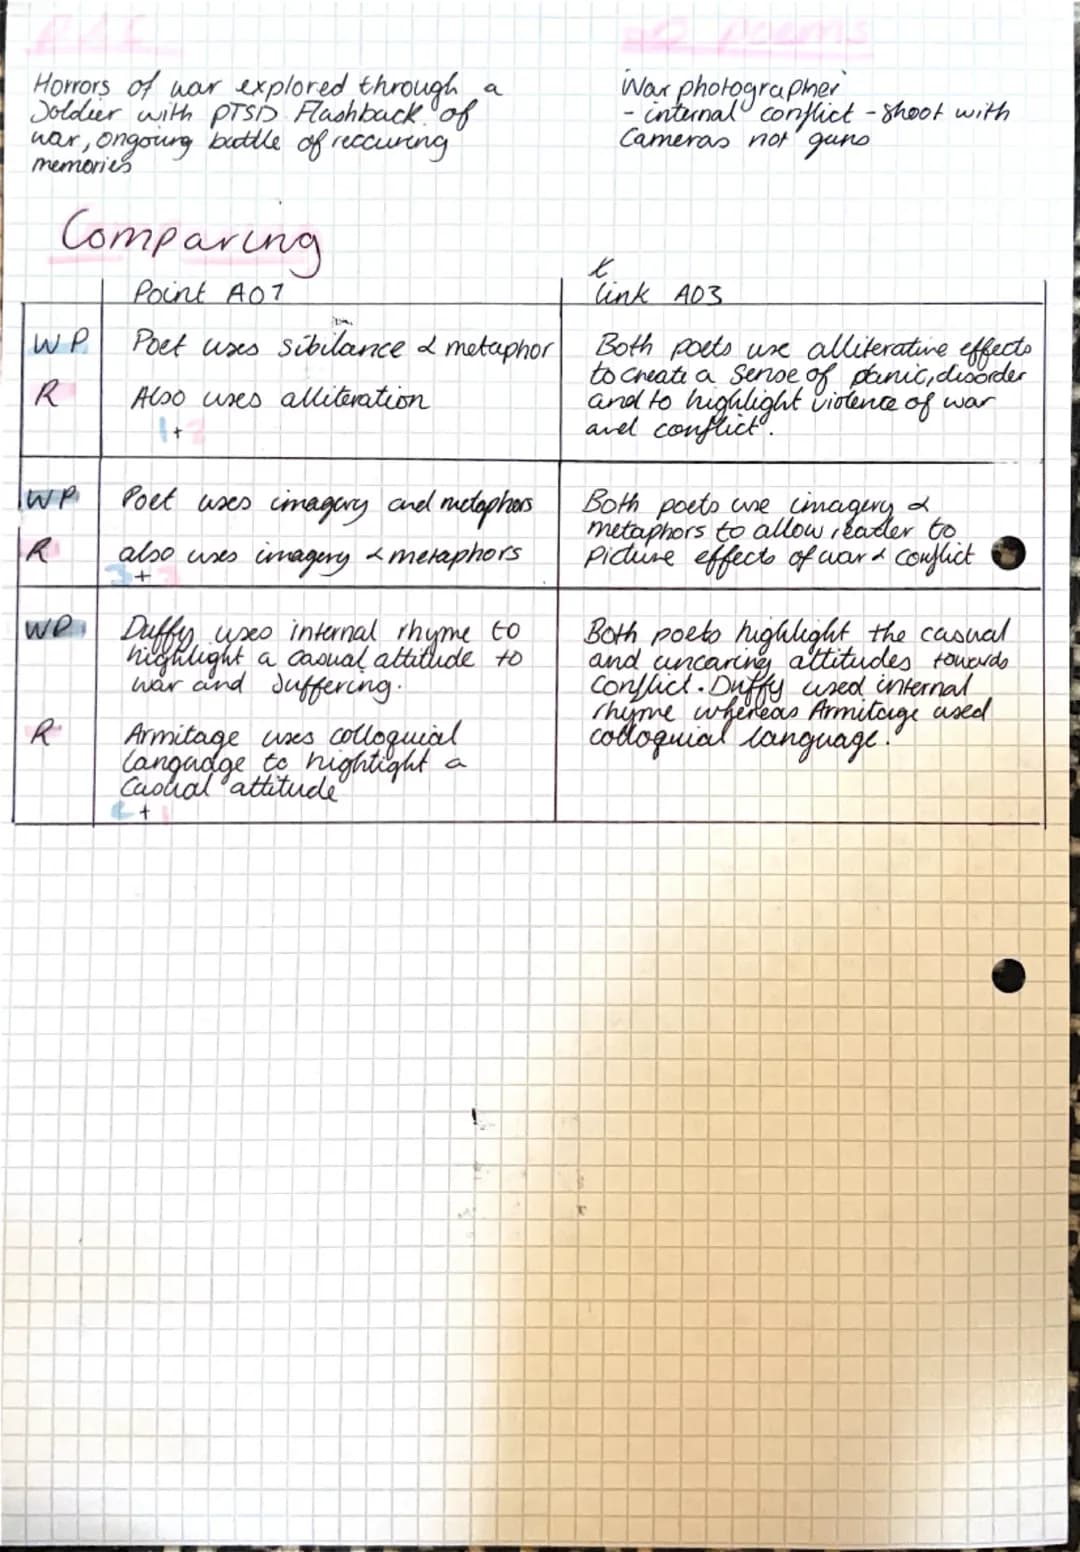 poems
Horrors of war explored through a
Soldier with PTSD Flashback of
war, ongoing battle of reccuring
memories
War photographer
- internal conflict - shoot with
cameras not guns
Comparing
Point AO1
link AO3
WP
Poet uses sibilance & metaphor
R
Also uses alliteration
1 + 2
Both poets use alliterative effects
to create a sense of panic, disorder
and to highlight violence of war
and conflict.
WP
Poet uses imagery and metaphors
R
also uses imagery & metaphors
3 + 3
Both poets use imagery &
metaphors to allow reader to
picture effects of war & conflict
WP
Duffy uses internal rhyme to
highlight a casual attitude to
war and suffering.
R
Armitage uses colloquial
language to hightight a
casual attitude
+ 1
Both poets highlight the casual
and uncaring attitudes towards
conflict. Duffy used internal
rhyme whereas Armitage used
colloquial language.